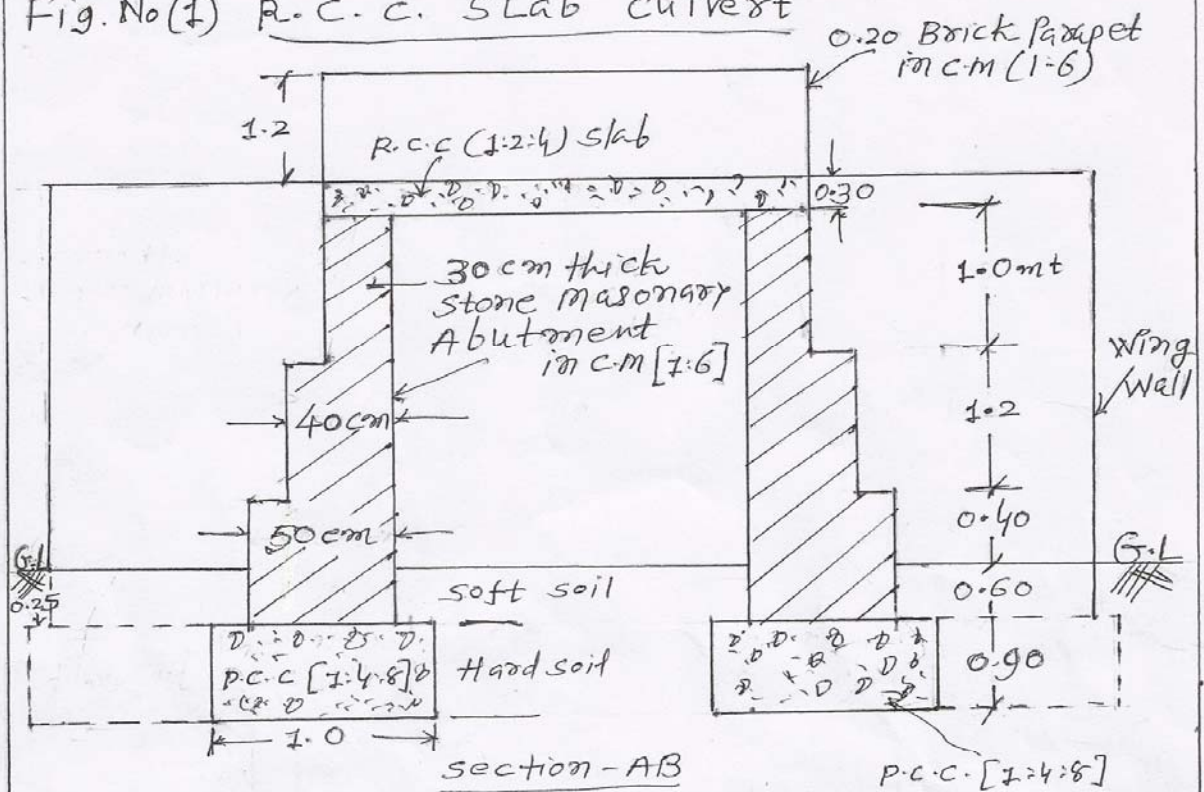 Fig. No(1) R.C.C. SLab Culvert
0.20 Brick Parapet
in c.m (1:6)
1.2
R.c.c (1:2:4) slab
0.30
30 cm thick
stone masonary
Abutment
in c.m [1:6]
1.0mt
Wing
Wall
40cm
1.2
50 cm
0.40
G.L
G.L
0.25
soft soil
0.60
P.c.c [1:4:8]
Hard soil
0.90
1.0
section-AB
P.c.c. [1:4:8]